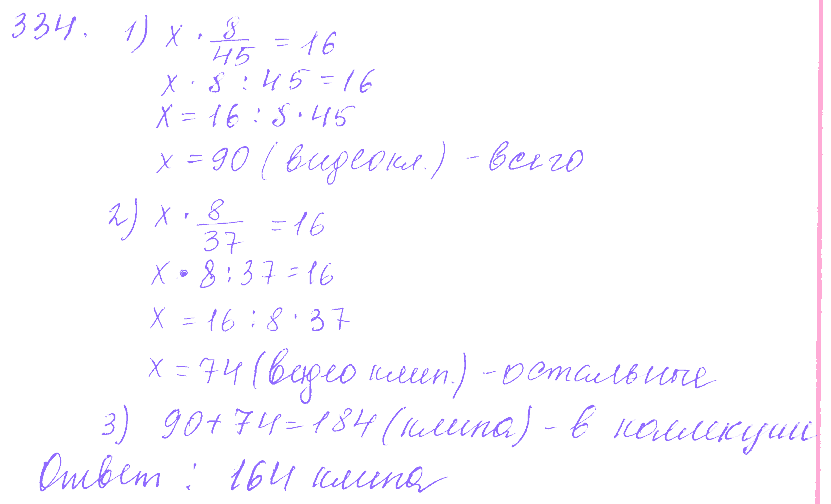 334. 1) x · 8/45 = 16
x · 8 : 45 = 16
x = 16 : 8 · 45
x = 90 (видеокл.) - всего
2) x · 8/37 = 16
x · 8 : 37 = 16
x = 16 : 8 · 37
x = 74 (видео клип.) - остальные
3) 90 + 74 = 184 (клипа) - в коллекции
Ответ : 164 клипа